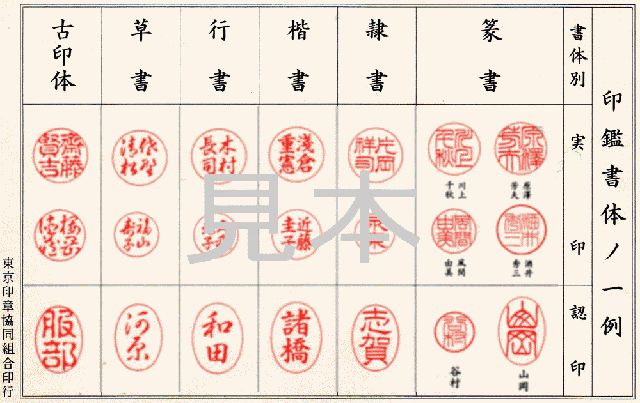 印鑑書体ノ一例
書体別
実印
認印
篆書
原澤
芳夫
川上
千秋
酒井
秀三
風間
由美
山岡
谷村
隷書
片岡
祥司
志賀
楷書
淺倉
重憲
近藤
圭子
諸橋
行書
木村
長司
和田
草書
福山
河原
古印体
齋藤
賢吉
服部
見本
東京印章協同組合印行